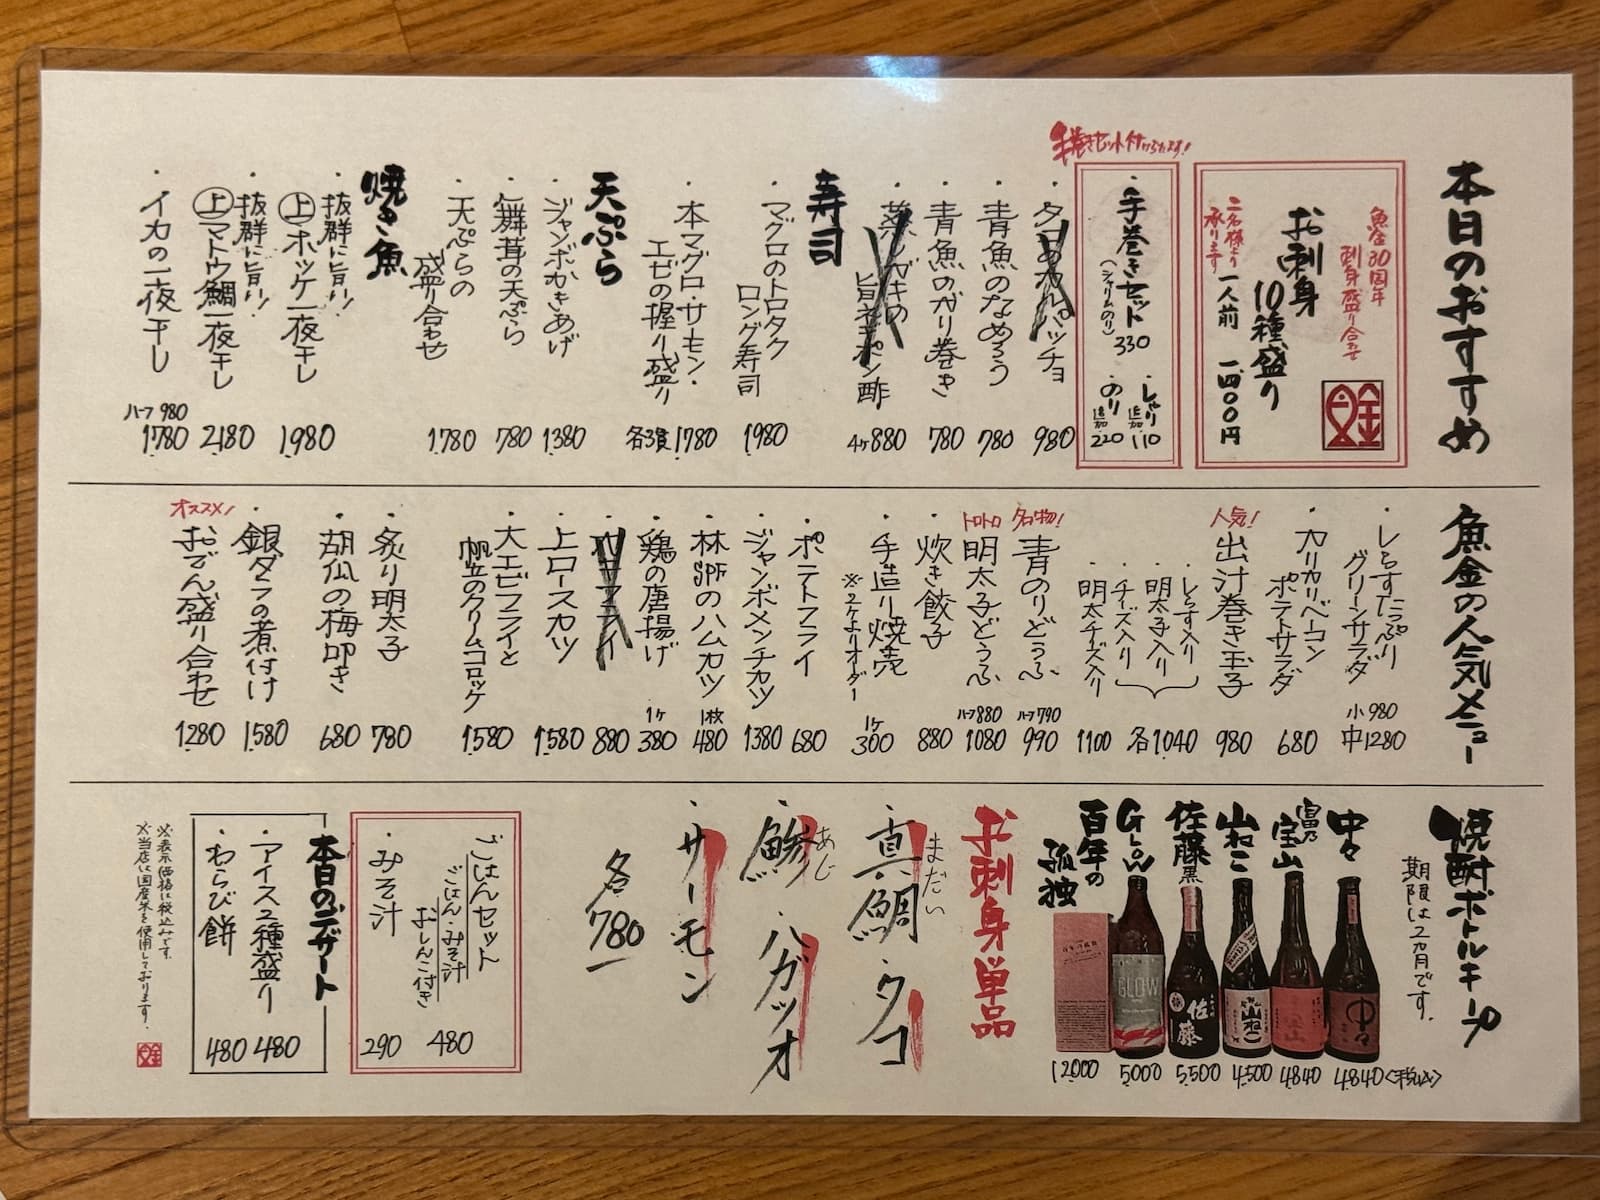 本日のおすすめ
魚金30周年
刺身盛り合わせ
お刺身
10種盛り
二名様より
承ります
一人前 一、四〇〇円
手巻きセット付けられます!
・手巻きセット 330
(シャリ、のり)
・しゃり 追加 110
・のり 追加 220
・タコのカルパッチョ 980
・青魚のなめろう 780
・青魚のガリ巻き 780
・蒸しガキの
旨ポン酢 4ヶ880
寿司
・マグロのトロタク
ロング寿司 1,980
・本マグロ・サーモン・
エビの握り盛り 各3貫 1,780
天ぷら
・ジャンボかきあげ 1,380
・舞茸の天ぷら 780
・天ぷらの
盛り合わせ 1,780
焼き魚
・抜群に旨い!
上ホッケ一夜干し 1,980
・抜群に旨い!
上マトウ鯛一夜干し 2,180
・イカの一夜干し ハーフ 980
1,780
魚金の人気メニュー
・しらすたっぷり
グリーンサラダ 小 980
中 1280
・カリカリベーコン
ポテトサラダ 680
人気!
・出汁巻き玉子 980
・しらす入り
・明太子入り
・チーズ入り 各1,040
・明太チーズ入り 1,100
名物!
青のりどうふ ハーフ790
990
トロトロ
明太子どうふ ハーフ880
1,080
・炊き餃子 880
・手造り焼売 1ヶ 300
※2ケよりオーダー
・ポテトフライ 680
・ジャンボメンチカツ 1380
・林SPFのハムカツ 1枚 480
・鶏の唐揚げ 1ヶ 380
・カキフライ 880
・上ロースカツ 1,580
・大エビフライと
帆立のクリームコロッケ 1,580
・炙り明太子 780
・胡瓜の梅叩き 680
・銀ダラの煮付け 1,580
オススメ!
おでん盛り合わせ 1,280
焼酎ボトルキープ
期限は2カ月です。
中々 4,840<税込>
富乃宝山 4,840
山ねこ 4,500
佐藤 黒 5,500
GLOW 5,000
百年の
孤独 12,000
中々
山ねこ
佐藤
GLOW
お刺身単品
・真鯛 まだい
・タコ
・鯵 あじ
・ハガツオ
・サーモン
各780
ごはんセット 480
ごはん・みそ汁
おしんこ付き
みそ汁 290
本日のデザート
・アイス2種盛り 480
・わらび餅 480
※表示価格は税込みです。
※当店は国産米を使用しております。